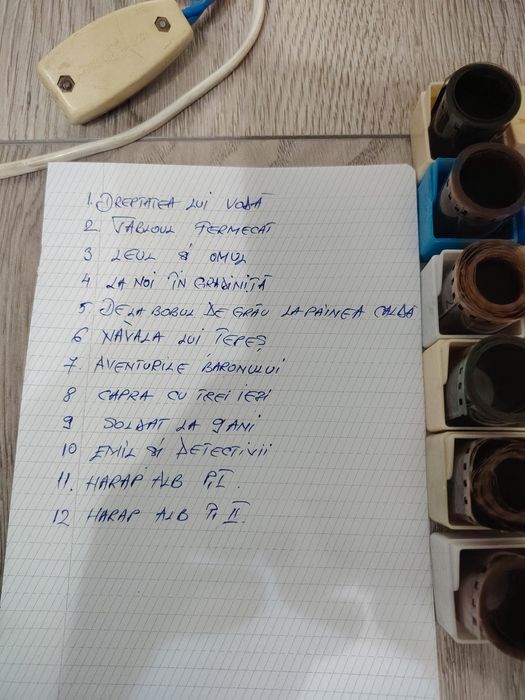 1. DREPTATEA LUI VODĂ
2 TABLOUL FERMECAT
3 LEUL ȘI OMUL
4 LA NOI ÎN GRĂDINIȚĂ
5 DE LA BOBUL DE GRÂU LA PÂINEA CALDĂ
6 NĂVALA LUI ȚEPEȘ
7. AVENTURILE BARONULUI
8 CAPRA CU TREI IEZI
9 SOLDAT LA 9 ANI
10 EMIL ȘI DETECTIVII
11. HARAP ALB P. I.
12 HARAP ALB P. II.